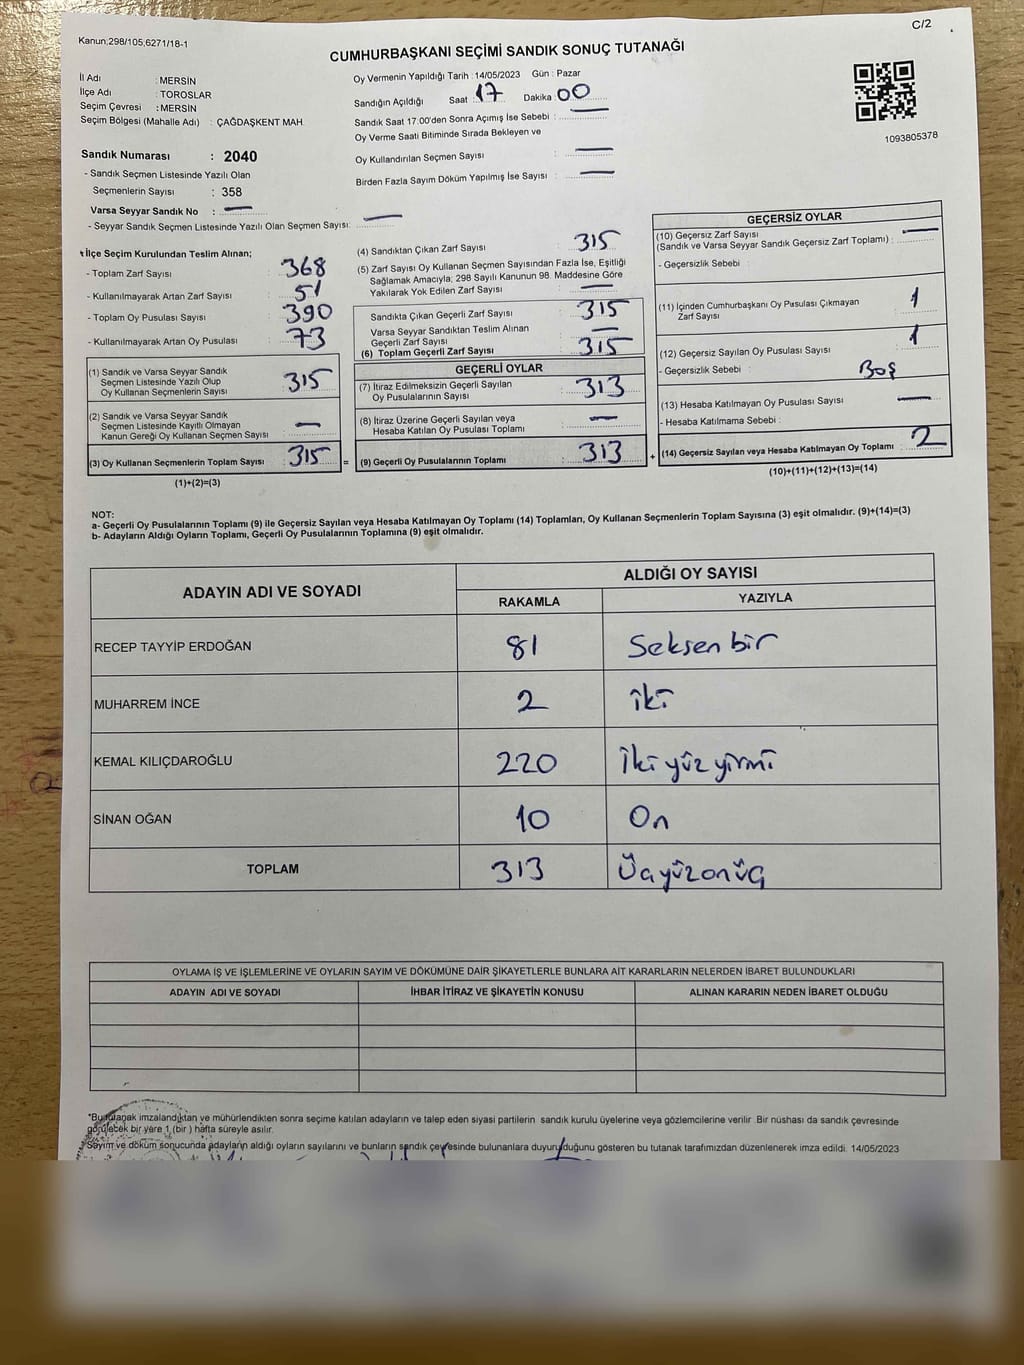 C/2
Kanun;298/105,6271/18-1
CUMHURBAŞKANI SEÇİMİ SANDIK SONUÇ TUTANAĞI
İl Adı : MERSİN
İlçe Adı : TOROSLAR
Seçim Çevresi : MERSİN
Seçim Bölgesi (Mahalle Adı) : ÇAĞDAŞKENT MAH.
Sandık Numarası : 2040
- Sandık Seçmen Listesinde Yazılı Olan
Seçmenlerin Sayısı : 358
Varsa Seyyar Sandık No : —
- Seyyar Sandık Seçmen Listesinde Yazılı Olan Seçmen Sayısı: —
Oy Vermenin Yapıldığı Tarih : 14/05/2023 Gün : Pazar
Sandığın Açıldığı Saat : 17 Dakika : 00
Sandık Saat 17:00'den Sonra Açımış İse Sebebi : —
Oy Verme Saati Bitiminde Sırada Bekleyen ve
Oy Kullandırılan Seçmen Sayısı : —
Birden Fazla Sayım Döküm Yapılmış İse Sayısı : —
1093805378
İlçe Seçim Kurulundan Teslim Alınan;
- Toplam Zarf Sayısı : 368
- Kullanılmayarak Artan Zarf Sayısı : 51
- Toplam Oy Pusulası Sayısı : 390
- Kullanılmayarak Artan Oy Pusulası : 73
(1) Sandık ve Varsa Seyyar Sandık
Seçmen Listesinde Yazılı Olup
Oy Kullanan Seçmenlerin Sayısı : 315
(2) Sandık ve Varsa Seyyar Sandık
Seçmen Listesinde Kayıtlı Olmayan
Kanun Gereği Oy Kullanan Seçmen Sayısı : —
(3) Oy Kullanan Seçmenlerin Toplam Sayısı : 315 =
(1)+(2)=(3)
(4) Sandıktan Çıkan Zarf Sayısı : 315
(5) Zarf Sayısı Oy Kullanan Seçmen Sayısından Fazla İse, Eşitliği
Sağlamak Amacıyla; 298 Sayılı Kanunun 98. Maddesine Göre
Yakılarak Yok Edilen Zarf Sayısı : —
Sandıkta Çıkan Geçerli Zarf Sayısı : 315
Varsa Seyyar Sandıktan Teslim Alınan
Geçerli Zarf Sayısı : —
(6) Toplam Geçerli Zarf Sayısı : 315
GEÇERLİ OYLAR
(7) İtiraz Edilmeksizin Geçerli Sayılan
Oy Pusulalarının Sayısı : 313
(8) İtiraz Üzerine Geçerli Sayılan veya
Hesaba Katılan Oy Pusulası Toplamı : —
(9) Geçerli Oy Pusulalarının Toplamı : 313 +
GEÇERSİZ OYLAR
(10) Geçersiz Zarf Sayısı
(Sandık ve Varsa Seyyar Sandık Geçersiz Zarf Toplamı) : —
- Geçersizlik Sebebi :
(11) İçinden Cumhurbaşkanı Oy Pusulası Çıkmayan
Zarf Sayısı : 1
(12) Geçersiz Sayılan Oy Pusulası Sayısı : 1
- Geçersizlik Sebebi : Boş
(13) Hesaba Katılmayan Oy Pusulası Sayısı : —
- Hesaba Katılmama Sebebi :
(14) Geçersiz Sayılan veya Hesaba Katılmayan Oy Toplamı : 2
(10)+(11)+(12)+(13)=(14)
NOT:
a- Geçerli Oy Pusulalarının Toplamı (9) ile Geçersiz Sayılan veya Hesaba Katılmayan Oy Toplamı (14) Toplamları, Oy Kullanan Seçmenlerin Toplam Sayısına (3) eşit olmalıdır. (9)+(14)=(3)
b- Adayların Aldığı Oyların Toplamı, Geçerli Oy Pusulalarının Toplamına (9) eşit olmalıdır.
ADAYIN ADI VE SOYADI ALDIĞI OY SAYISI
RAKAMLA YAZIYLA
RECEP TAYYİP ERDOĞAN 81 Seksen bir
MUHARREM İNCE 2 iki
KEMAL KILIÇDAROĞLU 220 İki yüz yirmi
SİNAN OĞAN 10 On
TOPLAM 313 Üçyüzonüç
OYLAMA İŞ VE İŞLEMLERİNE VE OYLARIN SAYIM VE DÖKÜMÜNE DAİR ŞİKAYETLERLE BUNLARA AİT KARARLARIN NELERDEN İBARET BULUNDUKLARI
ADAYIN ADI VE SOYADI İHBAR İTİRAZ VE ŞİKAYETİN KONUSU ALINAN KARARIN NEDEN İBARET OLDUĞU
*Bu tutanak imzalandıktan ve mühürlendikten sonra seçime katılan adayların ve talep eden siyasi partilerin sandık kurulu üyelerine veya gözlemcilerine verilir. Bir nüshası da sandık çevresinde
görülecek bir yere 1 (bir) hafta süreyle asılır.
Sayım ve döküm sonucunda adayların aldığı oyların sayılarını ve bunların sandık çevresinde bulunanlara duyurulduğunu gösteren bu tutanak tarafımızdan düzenlenerek imza edildi. 14/05/2023